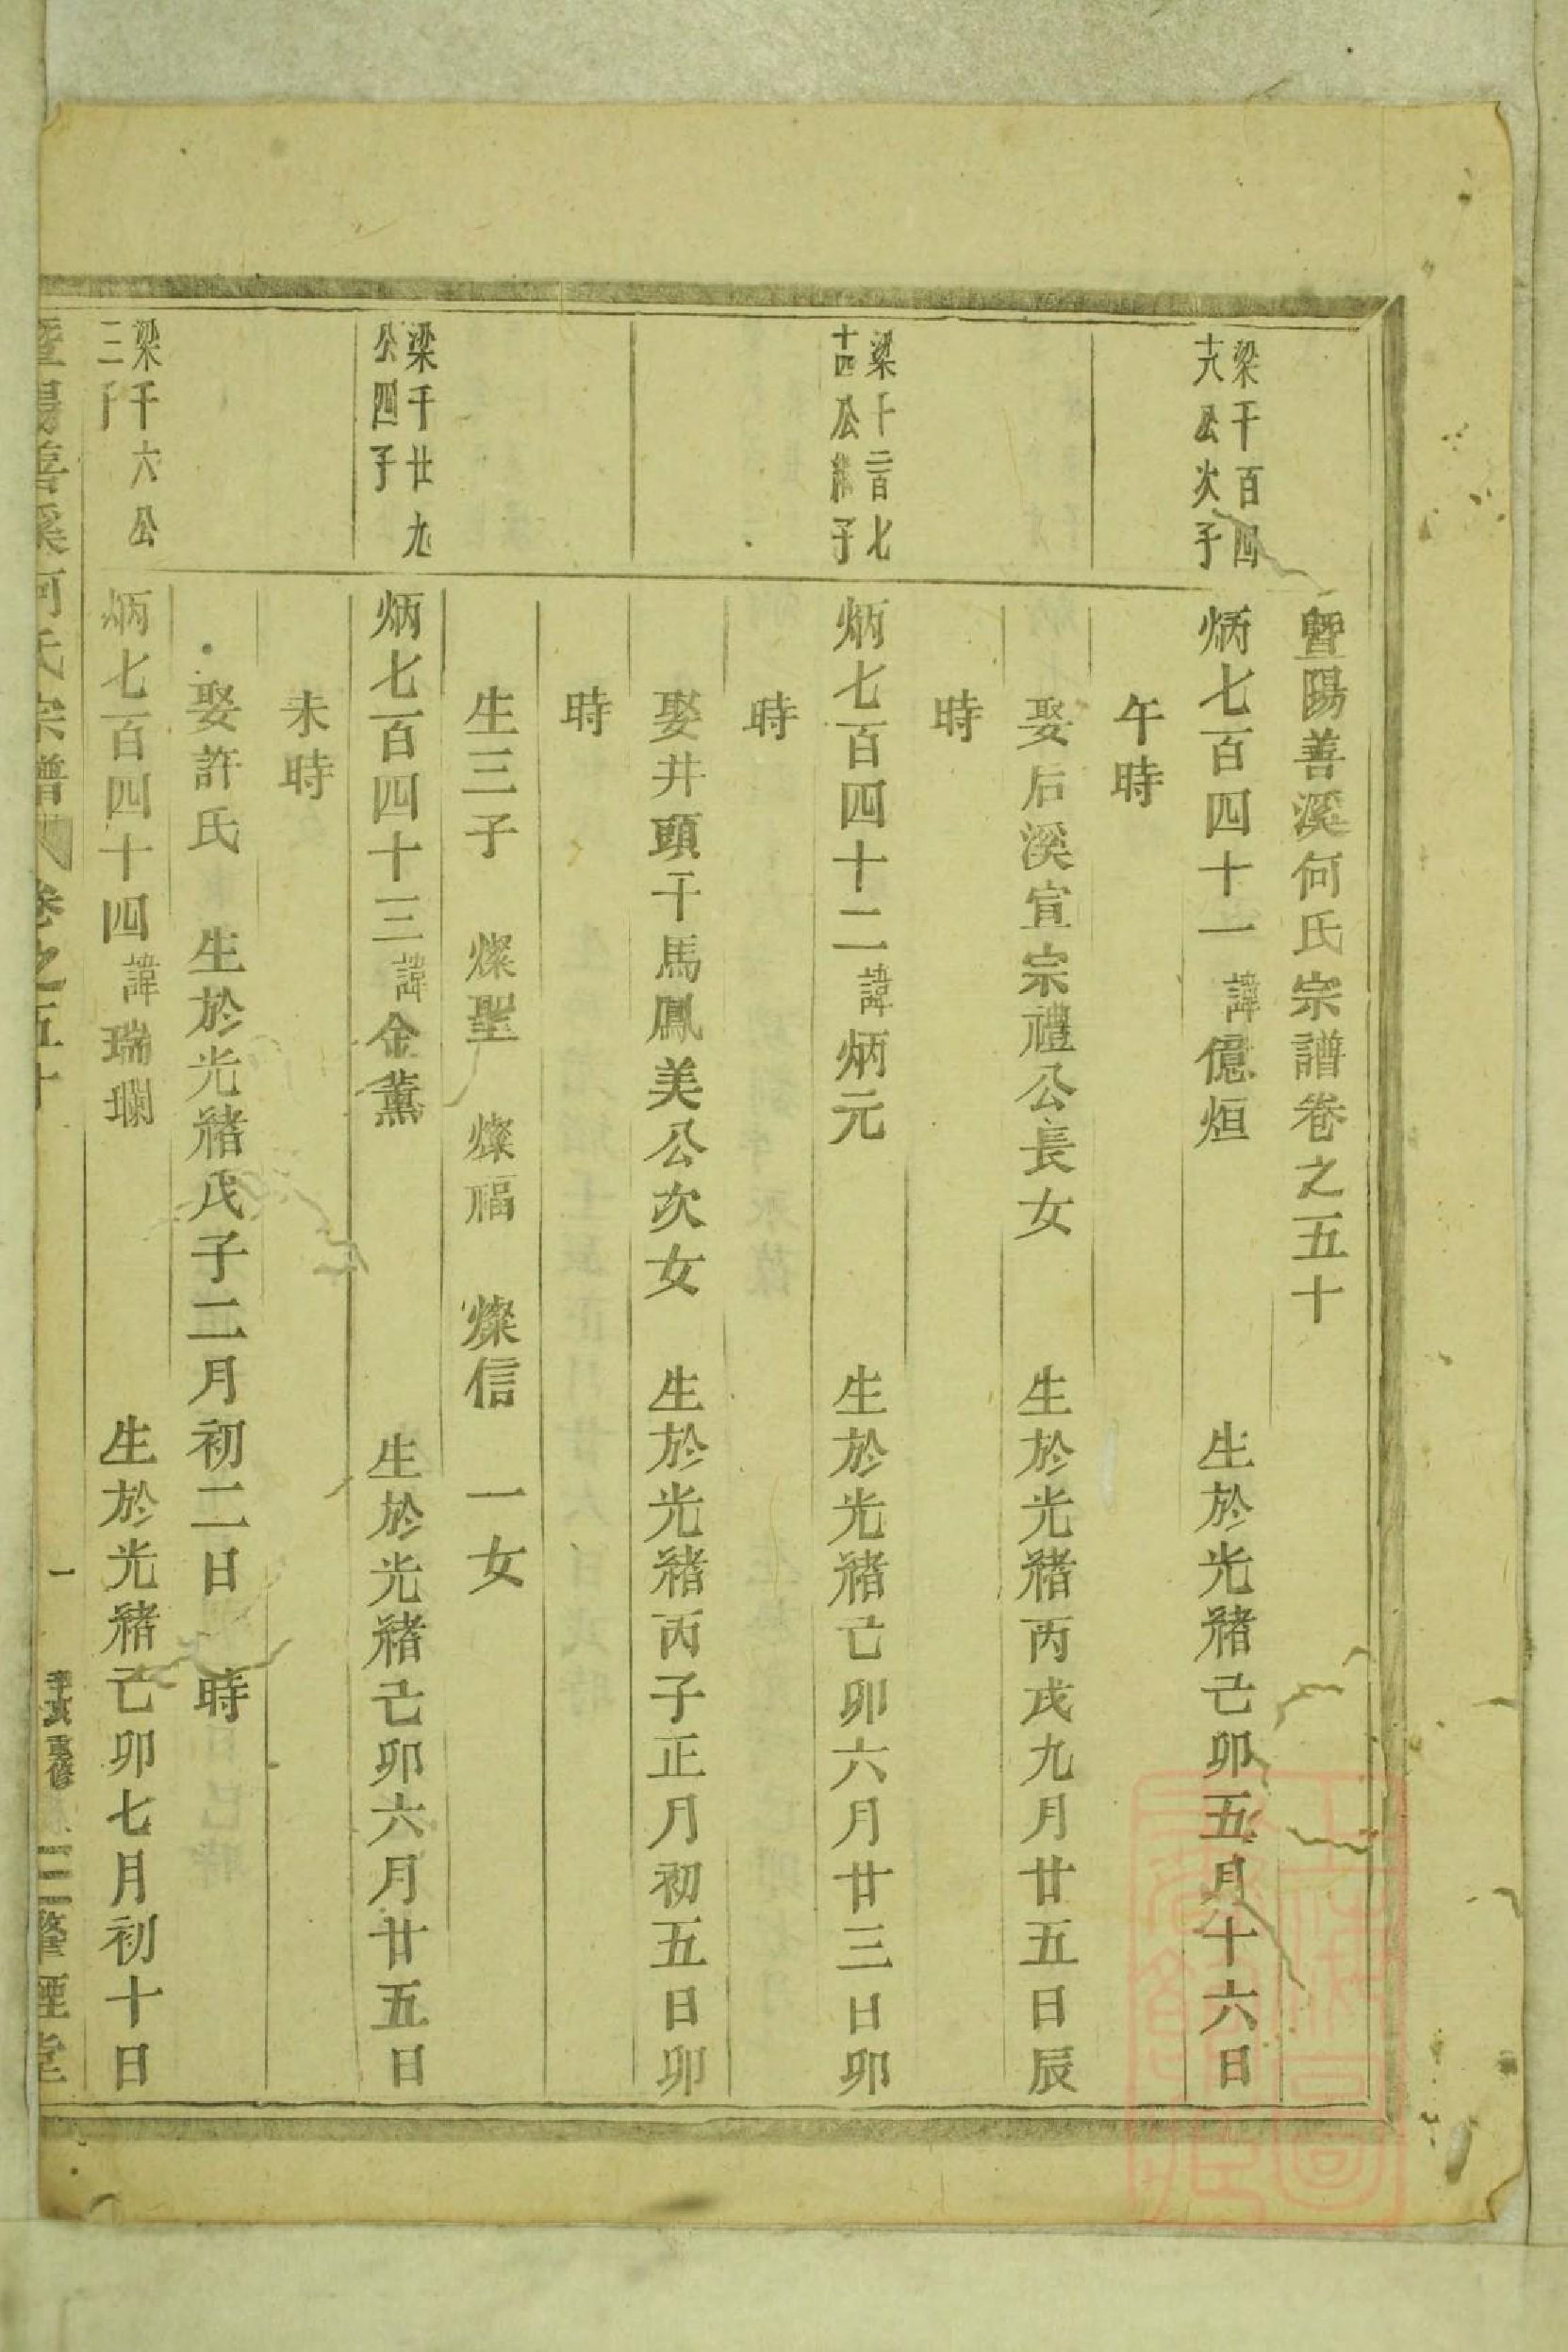 暨陽善溪何氏宗譜卷之五十
梁千百四
十八公次子
炳七百四十一諱億烜 生於光緒己卯五月十六日
午時
娶后溪宣宗禮公長女 生於光緒丙戌九月廿五日辰
時
梁千二百七
十四公繼子
炳七百四十二諱炳元 生於光緒己卯六月廿三日卯
時
娶井頭干馬鳳美公次女 生於光緒丙子正月初五日卯
時
生三子 燦聖 燦福 燦信 一女
梁千廿九
公四子
炳七百四十三諱金薰 生於光緒己卯六月廿五日
未時
娶許氏 生於光緒戊子二月初二日 時
梁千六公
二子
炳七百四十四諱瑞斕 生於光緒己卯七月初十日
暨陽善溪何氏宗譜 卷之五十 一 重修 堂